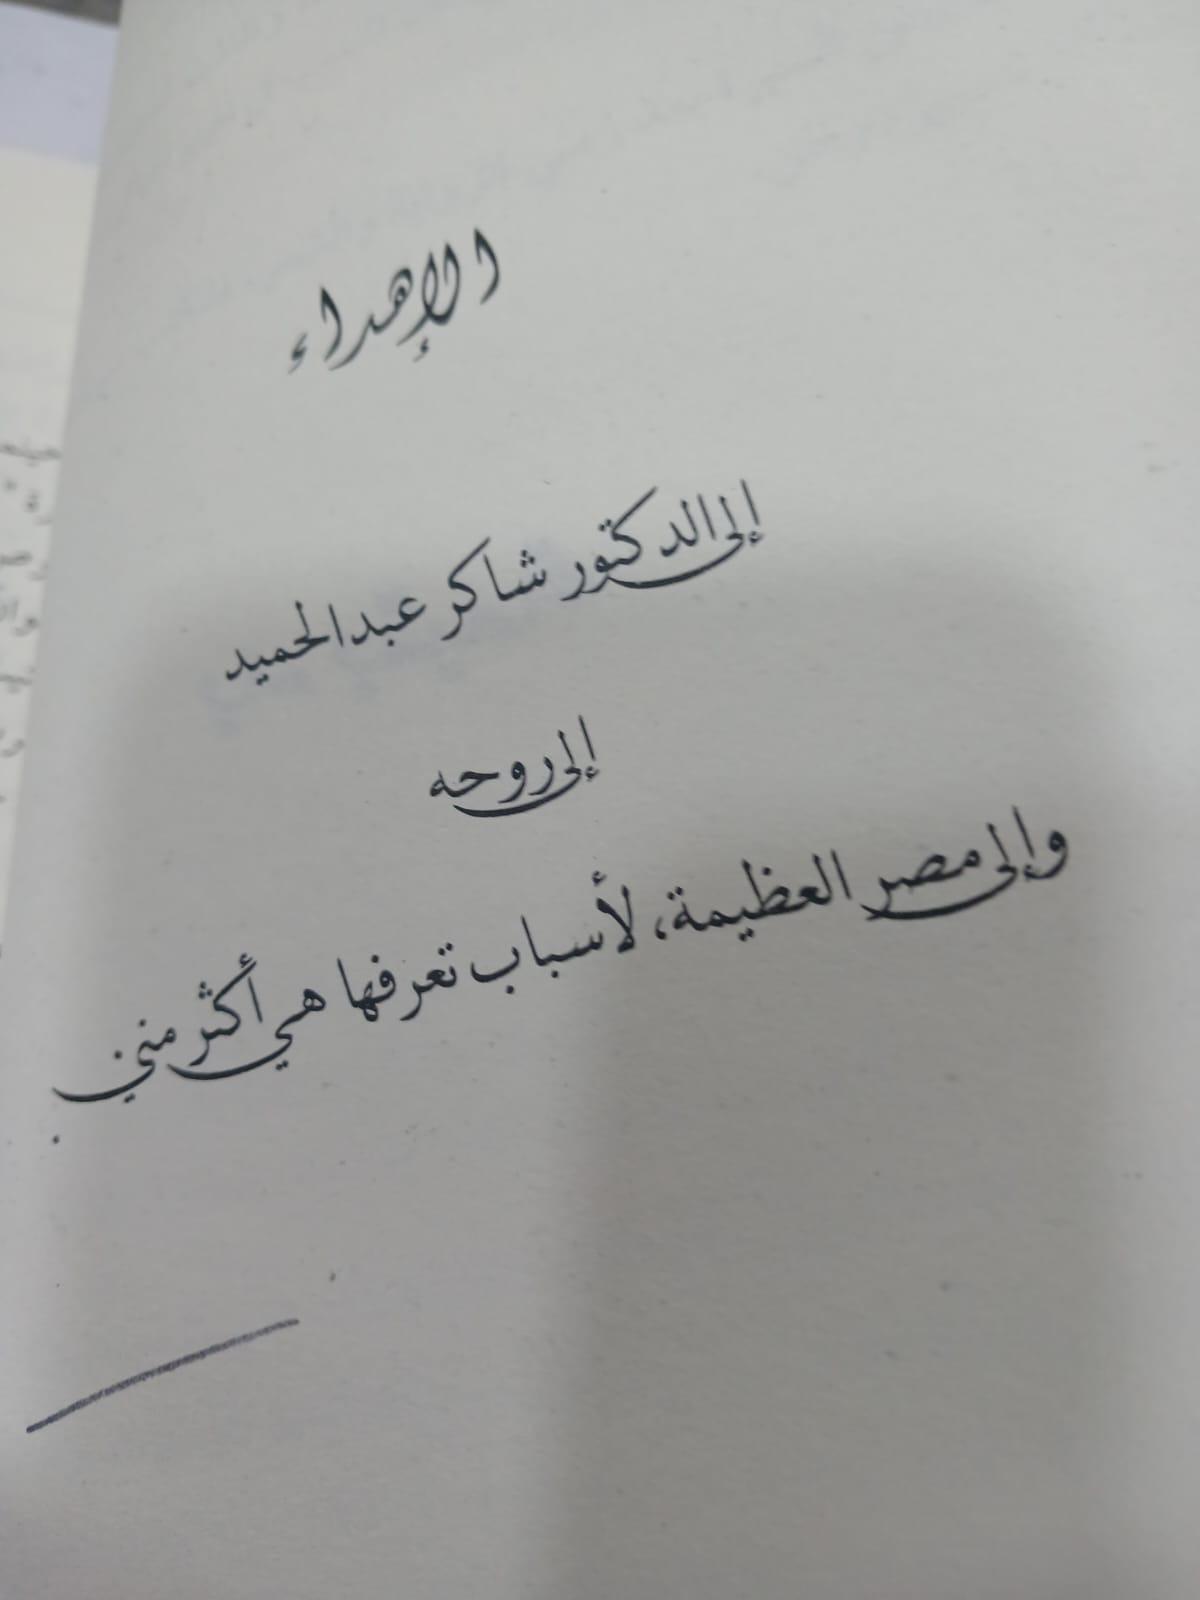 الإهداء
إلى الدكتور شاكر عبدالحميد
إلى روحه
وإلى مصر العظيمة، لأسباب تعرفها هي أكثر مني.